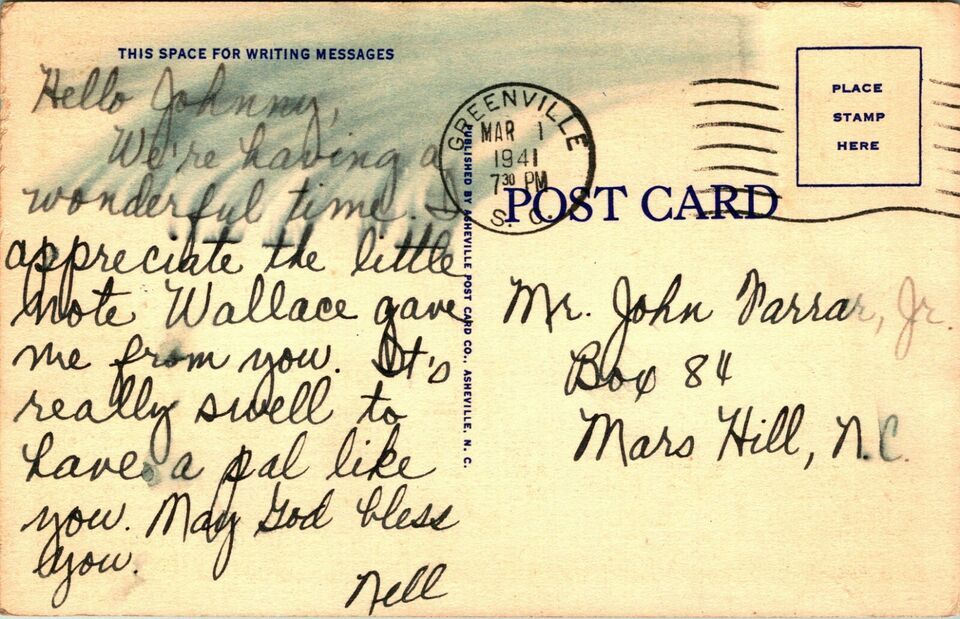 THIS SPACE FOR WRITING MESSAGES
Hello Johnny,
We're having a
wonderful time. I
appreciate the little
note Wallace gave
me from you. It's
really swell to
have a pal like
you. May God bless
you.
Nell
PUBLISHED BY ASHEVILLE POST CARD CO., ASHEVILLE, N. C.
GREENVILLE
MAR 1
1941
7 30 PM
S. C.
PLACE
STAMP
HERE
POST CARD
Mr. John Farrar, Jr.
Box 84
Mars Hill, N.C.